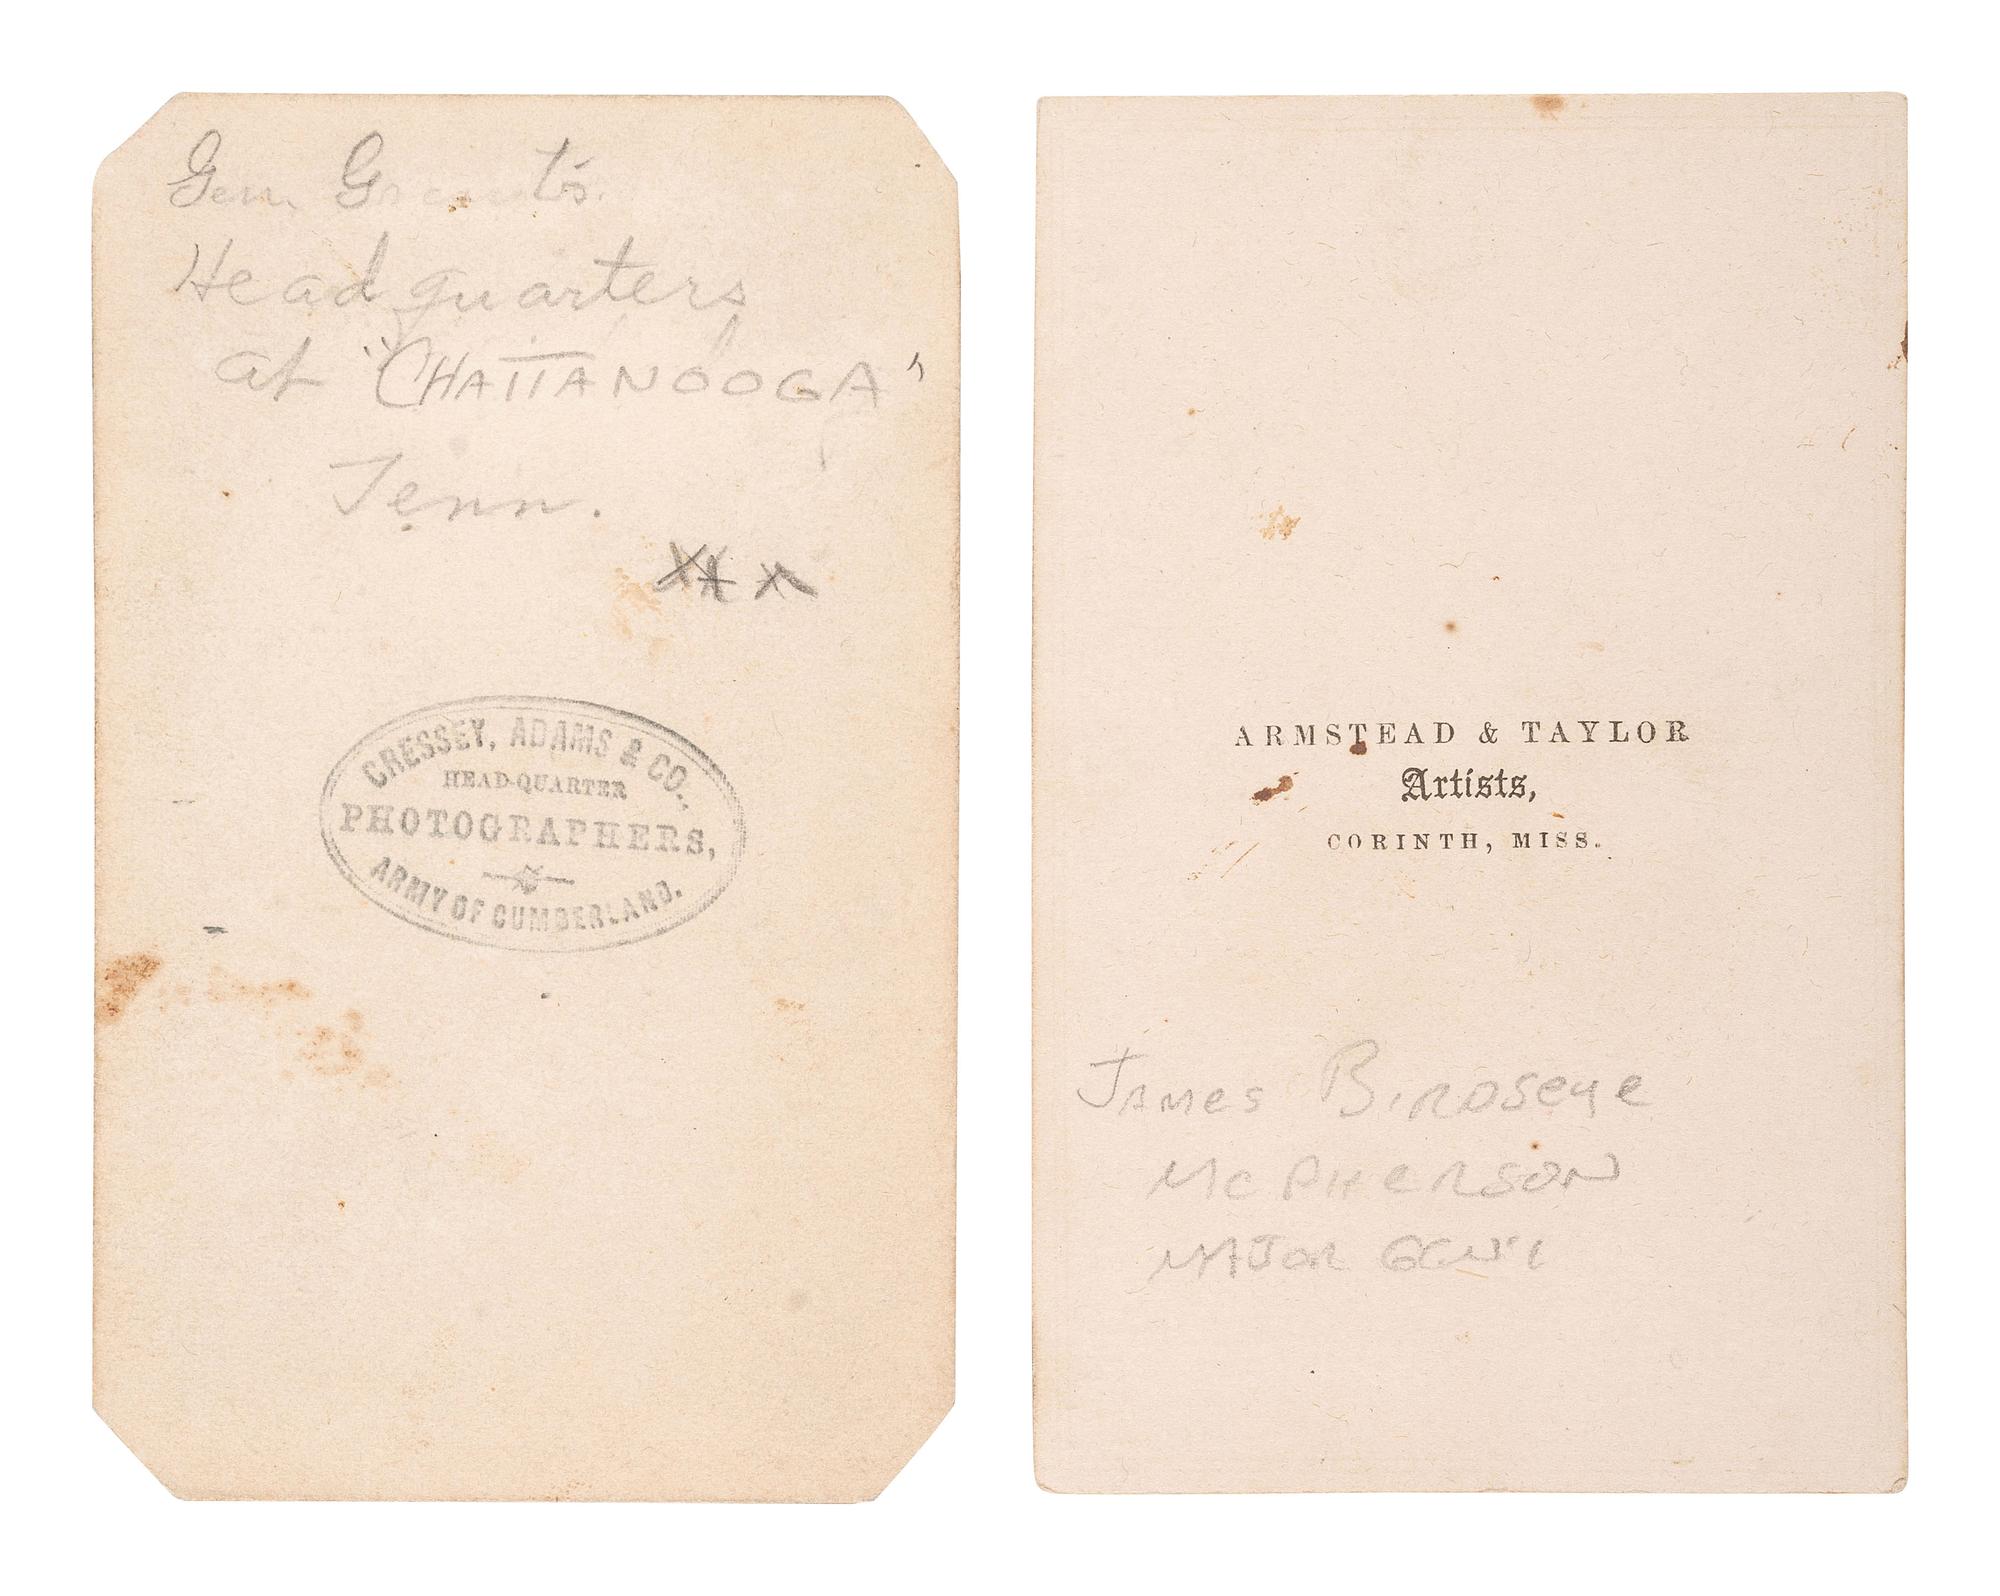 Gen. Grant's.
Headquarters
at "CHATTANOOGA"
Tenn.
CRESSEY, ADAMS & CO.,
HEAD-QUARTER
PHOTOGRAPHERS,
ARMY OF CUMBERLAND.
ARMSTEAD & TAYLOR
Artists,
CORINTH, MISS.
JAMes BIRDSeye
Mc PHeRSON
MAJOR GEN'l